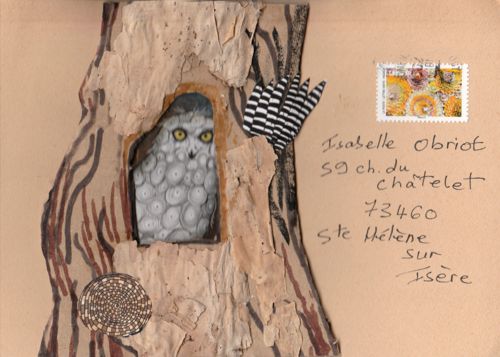 Isabelle Obriot
59 ch. du
châtelet
73460
Ste Hélène
sur
Isère